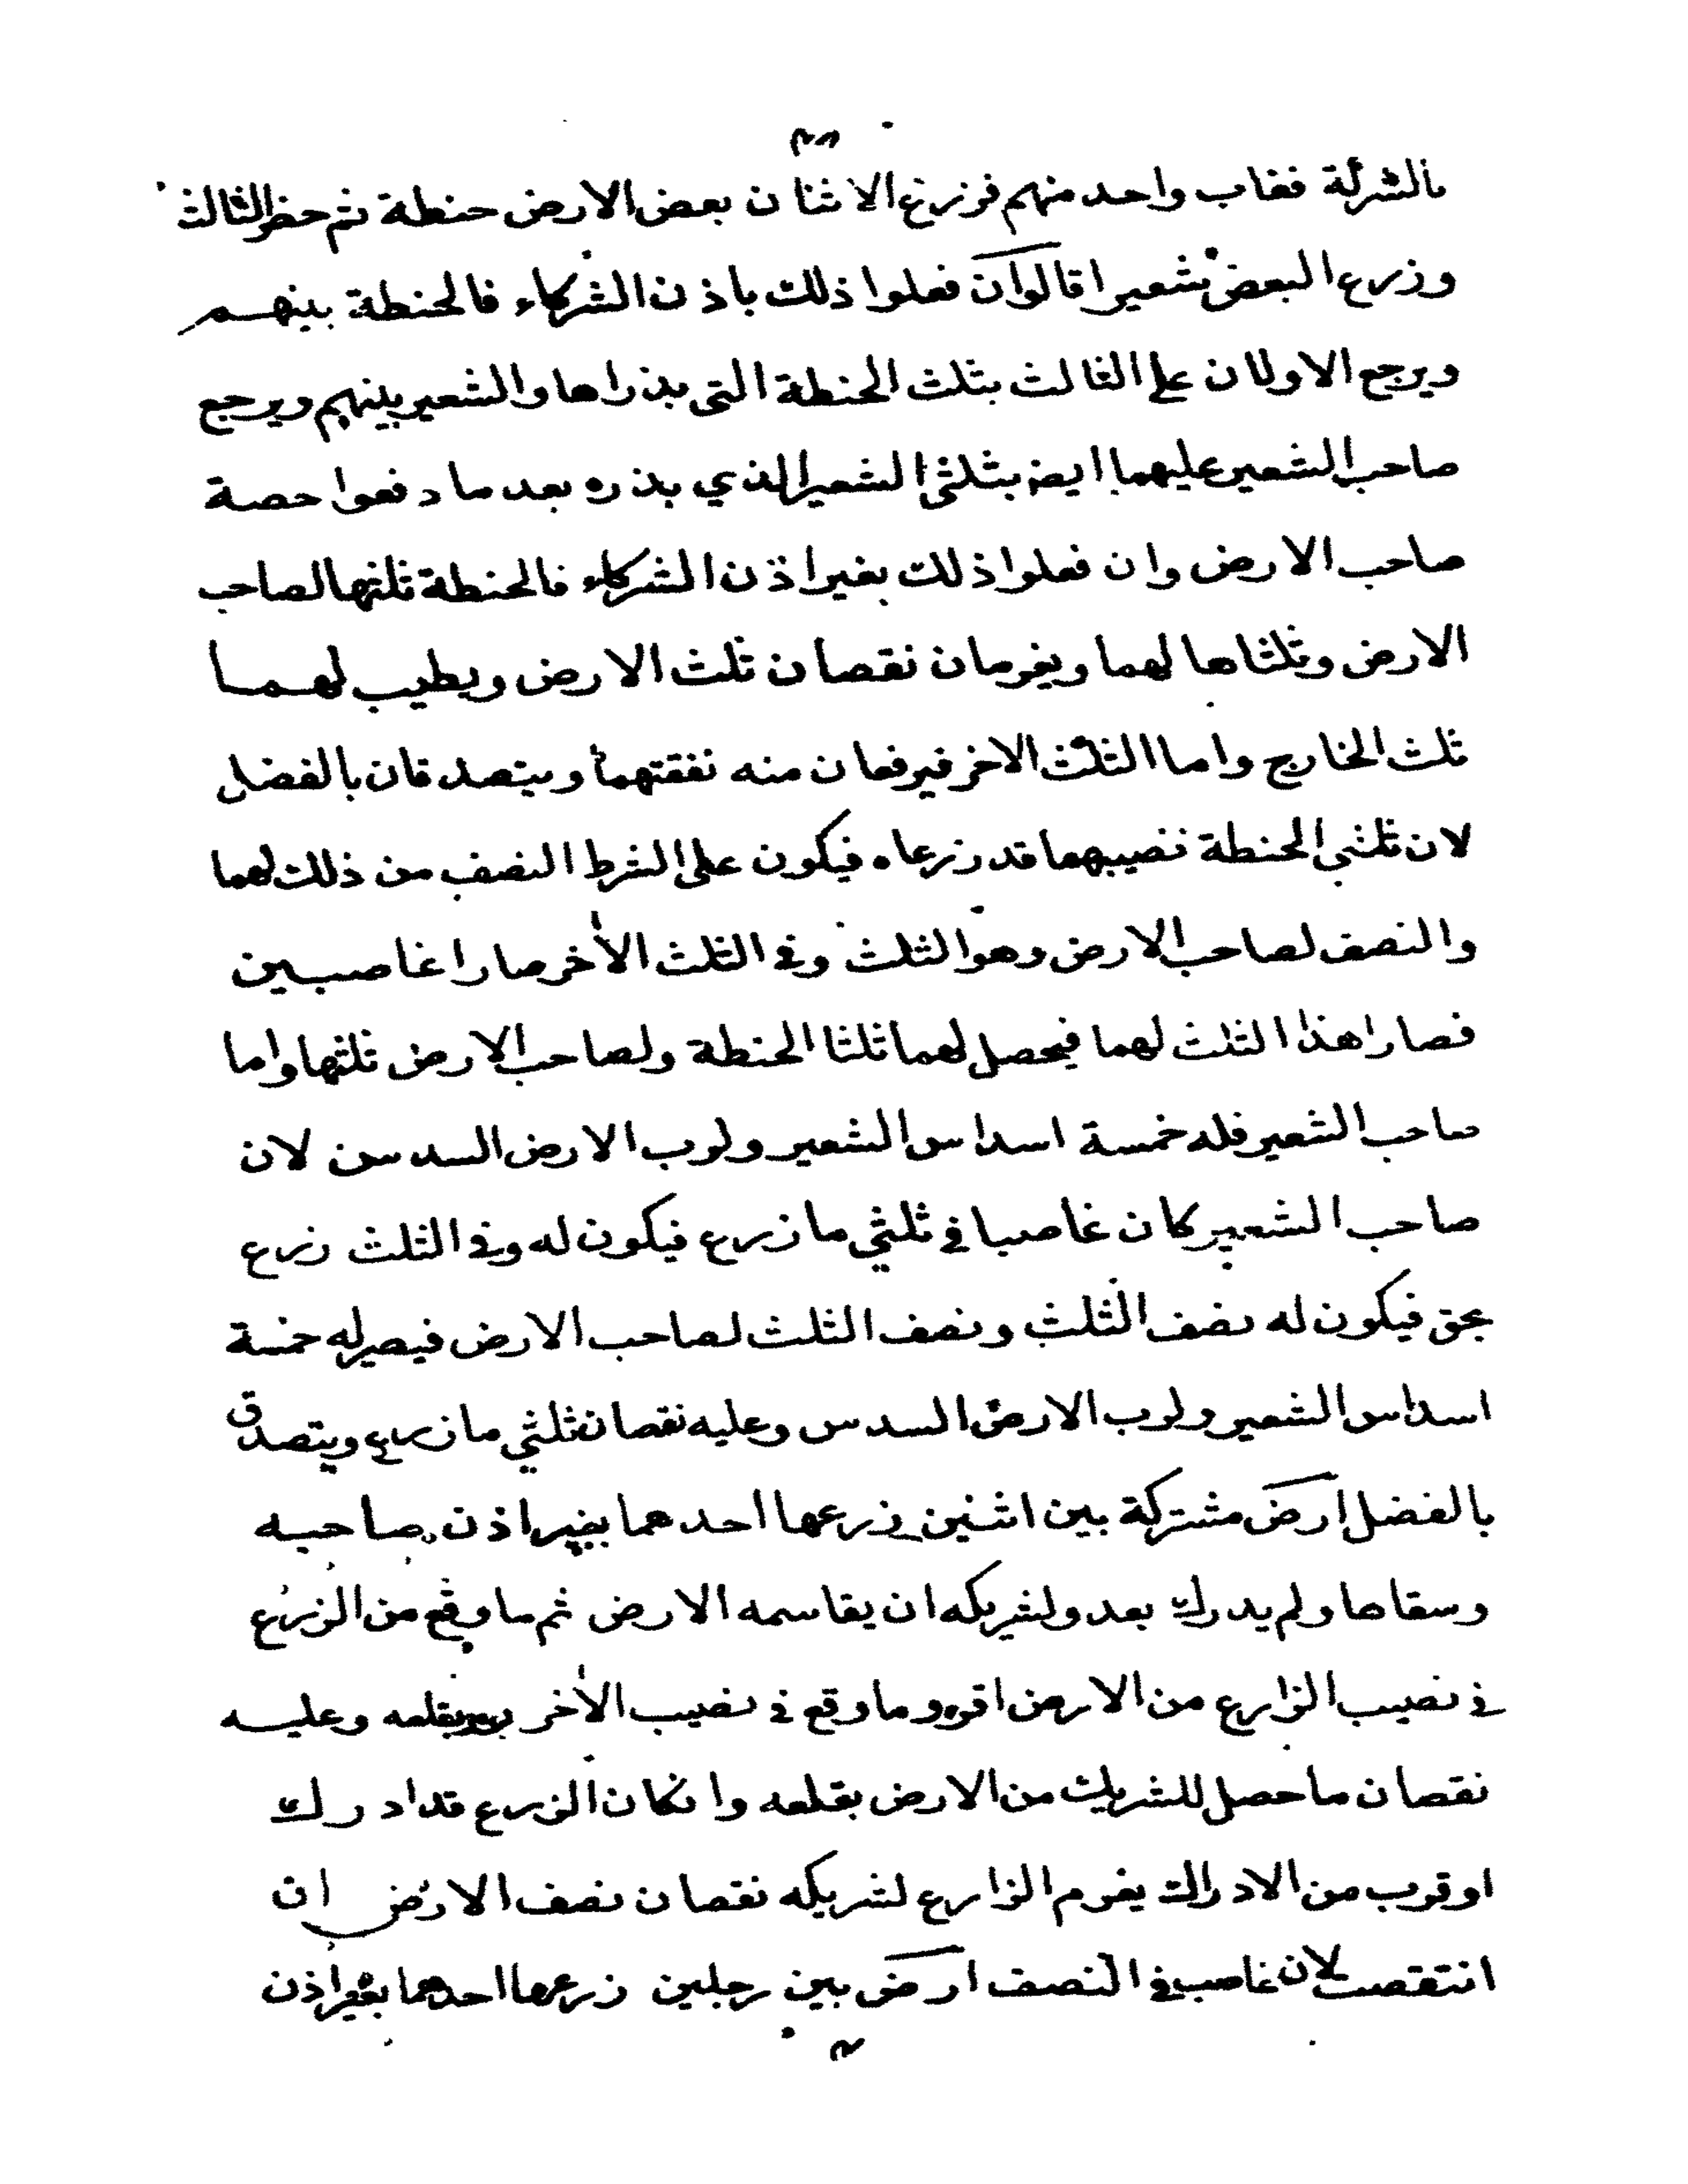 بالشركة فغاب واحد منهم فزرع الاثنان بعض الارض حنطة ثم حضر الثالث
وزرع البعض شعيرا قالوا ان فعلوا ذلك باذن الشركاء فالحنطة بينهم
ويرجع الاولان على الثالث بثلث الحنطة التى بذراها والشعير بينهم ويرجع
صاحب الشعير عليهما ايضا بثلثى الشعير الذي بذره بعد ما دفعوا حصة
صاحب الارض وان فعلوا ذلك بغير اذن الشركاء فالحنطة ثلثها لصاحب
الارض وثلثاها لهما ويغرمان نقصان ثلث الارض ويطيب لهما
ثلث الخارج واما الثلث الاخر فيرفعان منه نفقتهما ويتصدقان بالفضل
لان ثلثي الحنطة نصيبهما قد زرعاه فيكون على الشرط النصف من ذلك لهما
والنصف لصاحب الارض وهو الثلث وفى الثلث الأخر صارا غاصبين
فصار هذا الثلث لهما فيحصل لهما ثلثا الحنطة ولصاحب الارض ثلثها واما
صاحب الشعير فله خمسة اسداس الشعير ولرب الارض السدس لان
صاحب الشعير كان غاصبا في ثلثي ما زرع فيكون له وفى الثلث زرع
بحق فيكون له نصف الثلث ونصف الثلث لصاحب الارض فيصير له خمسة
اسداس الشعير ولرب الارض السدس وعليه نقصان ثلثي ما زرع ويتصدق
بالفضل ارض مشتركة بين اثنين زرعها احدهما بغير اذن صاحبه
وسقاها ولم يدرك بعد ولشريكه ان يقاسمه الارض ثم ما وقع من الزرع
في نصيب الزارع من الارض اقر وما وقع في نصيب الأخر يقلعه وعليه
نقصان ما حصل للشريك من الارض بقلعه وانكان الزرع قد ادرك
او قرب من الادراك يغرم الزارع لشريكه نقصان نصف الارض ان
انتقصت لان غاصب في النصف ارض بين رجلين زرعها احدهما بغير اذن